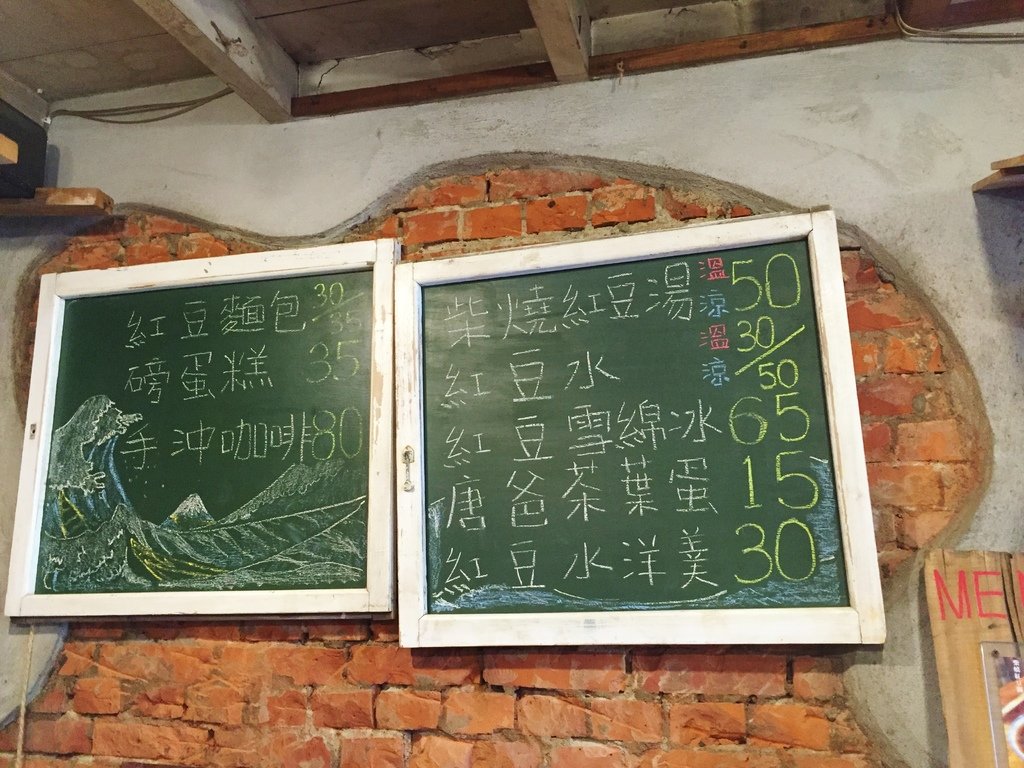 紅豆麵包 30/35
磅蛋糕 35
手沖咖啡 80
柴燒紅豆湯 溫涼 50
紅豆水 溫涼 30/50
紅豆雪綿冰 65
唐爸茶葉蛋 15
紅豆水洋羹 30
ME